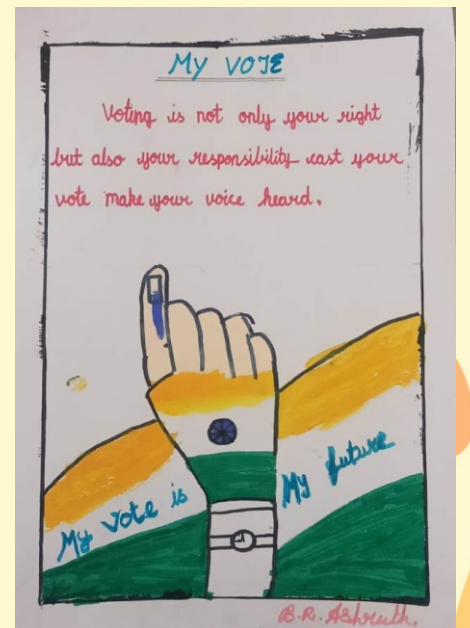 MY VOTE
Voting is not only your right
but also your responsibility cast your
vote make your voice heard.
My Vote is My future
B.R. Ashruth.